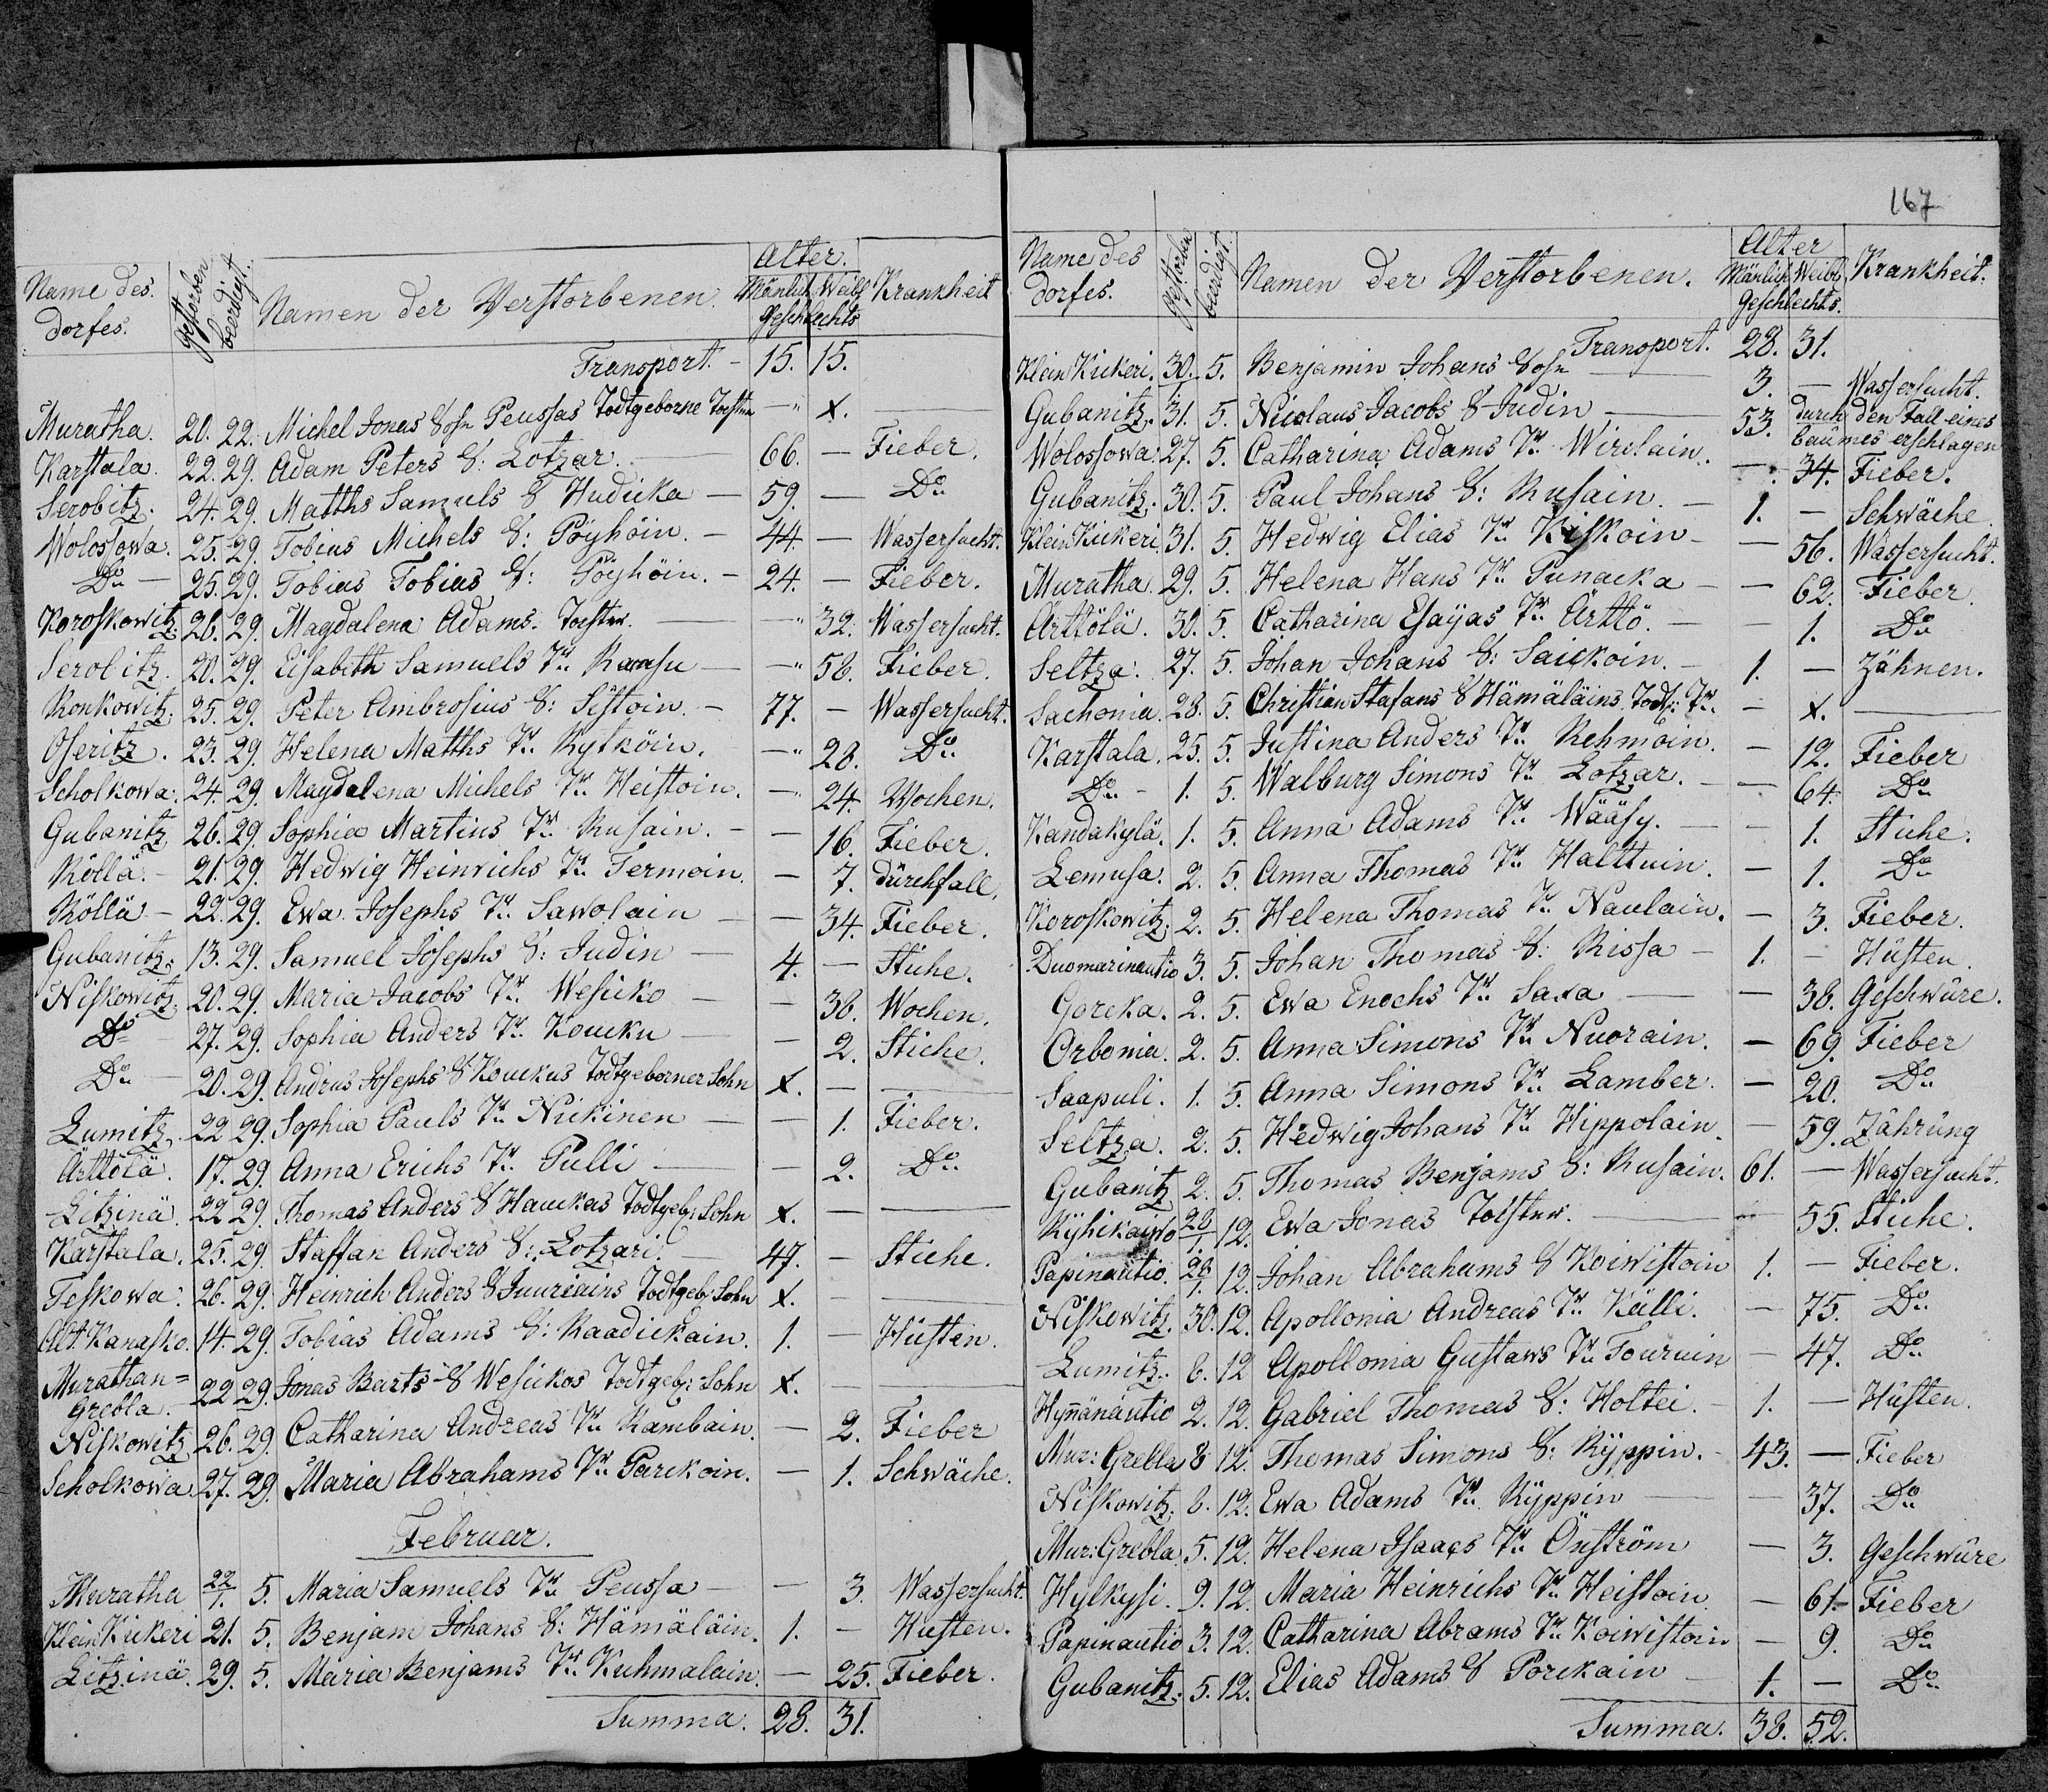 Name des dorfes. gestorben beerdigt. Namen der Verstorbenen. Alter. Mänlich Weibl Geschlechts Krankheit
Transport. - 15. 15.
Muratha. 20. 22. Michel Jonas Sohn Peussas Todtgeborne Tochter — x. —
Karstala. 22. 29. Adam Peters S: Lotzar. — 66. — Fieber.
Serobitz. 24. 29. Matths Samuels S Hudicka — 59. — Do
Wolossowa. 25. 29. Tobias Michels S: Pöyhöin. — 44. — Wassersucht.
Do — 25. 29. Tobias Tobias S: Pöyhöin. — 24. — Fieber.
Koroskowitz. 26. 29. Magdalena Adams. Tochter. — 32. Wassersucht.
Serobitz. 20. 29. Elsabeth Samuels Tr. Kaasu — 58. Fieber.
Ronkowitz. 25. 29. Peter Ambrosius S: Sistoin. — 77. — Wassersucht.
Oseritz. 23. 29. Helena Matths Tr. Rytköin. — 28. Do
Scholkowa. 24. 29. Magdalena Michels Tr. Heistoin. — 24. Wochen.
Gubanitz. 26. 29. Sophia Martins Tr. Rusain. — 16. Fieber.
Köllä. — 21. 29. Hedwig Heinrichs Tr. Termoin. — 7. Dürchfall.
Köllä — 22. 29. Ewa Josephs Tr. Sawolain — 34. Fieber.
Gubanitz. 13. 29. Samuel Josephs S: Judin — 4. — Stiche.
Niskowitz. 20. 29. Maria Jacobs Tr. Wesicko — 38. Wochen.
Do — 27. 29. Sophia Anders Tr. Koucku — 2. Stiche.
Do — 20. 29. Andrus Josephs S Kouckus Todtgeborner Sohn x. — —
Lumitz. 22 29. Sophia Pauls Tr. Nickinen — 1. Fieber.
Ärttölä. 17. 29. Anna Erichs Tr. Pulli — 2. Do
Litzinä. 22 29. Thomas Anders S Hauckas Todtgeb: Sohn x. — —
Karstala. 25. 29. Staffan Anders S: Lotzari. — 47. — Stiche.
Teskowa. 26. 29. Heinrich Anders S Juuriains Todtgeb: Sohn x. — —
Alt Kanasko. 14. 29. Tobias Adams S: Raadickain. 1. — Hüsten.
Murathan=
Grebla. 22 29. Jonas Barts S Wesickos Todtgeb: Sohn x. — —
Niskowitz 26. 29. Catharina Andreas Tr. Kambain. — 2. Fieber
Scholkowa 27. 29. Maria Abrahams Tr. Parckoin. — 1. Schwäche.
Februar.
Muratha 22/1. 5. Maria Samuels Tr. Peussa — 3. Wassersucht.
Klein Kickeri 21. 5. Benjam Johans S: Hämäläin. 1. — Husten.
Litzinä. 29. 5. Maria Benjams Tr. Kuhmalain. — 25. Fieber.
Summa. 28. 31.
167
Name des dorfes. gestorben beerdigt. Namen der Verstorbenen. Alter Mänlich Weibl. Geschlechts. Krankheit.
Transport. 28. 31.
Klein Kickeri. 30. 5. Benjamin Johans Sohn — 3. — Wassersucht.
Gubanitz. 31. 5. Nicolaus Jacobs S Judin — 53. durch den Fall eines
baumes erschlagen
Wolossowa. 27. 5. Catharina Adams Tr. Wirolain. — 34. Fieber.
Gubanitz. 30. 5. Paul Johans S: Rusain. — 1. — Schwäche.
Klein Kickeri. 31. 5. Hedwig Elias Tr. Kiskoin — 56. Wassersucht.
Muratha. 29. 5. Helena Hans Tr. Punacka — 62. Fieber.
Ärttölä. 30. 5. Catharina Esayas Tr. Ärttö. — 1. Do
Seltza. 27. 5. Johan Johans S: Saickoin. — 1. — Zähnen.
Sachonia. 28. 5. Christian Stafans S Hämäläins Todtg: Tr. — x. —
Karstala. 25. 5. Justina Anders Tr. Rehmöin. — 12. Fieber
Do — 1. 5. Walburg Simons Tr. Lotzar. — 64. Do
Kandakylä. 1. 5. Anna Adams Tr. Wääsy. — 1. Stiche.
Lemusa. 2. 5. Anna Thomas Tr. Halttuin. — 1. Do
Koroskowitz. 2. 5. Helena Thomas Tr. Naulain. — 3. Fieber.
Duomarinautio 3. 5. Johan Thomas S: Kissa — 1. — Hüsten.
Goreka. 2. 5. Ewa Enochs Tr. Saxa — 38. Geschwüre.
Orbonia. 2. 5. Anna Simons Tr. Nuorain. — 69. Fieber
Saapuli. 1. 5. Anna Simons Tr. Lamber. — 20. Do
Seltza. 2. 5. Hedwig Johans Tr. Hippolain. — 59. Zährung
Gubanitz 2. 5. Thomas Benjams S: Rusain. 61. — Wassersucht.
Kyhikaiwo 28/1. 12. Ewa Jonas Tochter. — 55. Stiche.
Papinautio. 29/1. 12. Johan Abrahams S Koiwistoin 1. — Fieber.
Niskowitz. 30. 12. Apollonia Andreas Tr. Källi. — 75. Do
Lumitz. 6. 12 Apollonia Gustaws Tr. Touruin — 47. Do
Hynänautio 2. 12. Gabriel Thomas S: Holtei. — 1. — Hüsten.
Mur: Grebla 8 12. Thomas Simons S: Kyppin. — 43. — Fieber
Niskowitz. 6. 12. Ewa Adams Tr. Kyppin — 37. Do
Mur: Grebla. 5. 12. Helena Isaacs Tr. Önström — 3. Geschwüre
Hylkysi. 9. 12. Maria Heinrichs Tr. Heistoin. — 61. Fieber
Papinautio 3. 12. Catharina Abrams Tr. Koiwistoin — 9. Do
Gubanitz. 5. 12. Elias Adams S Porckain — 1. — Do
Summa. 38. 52.